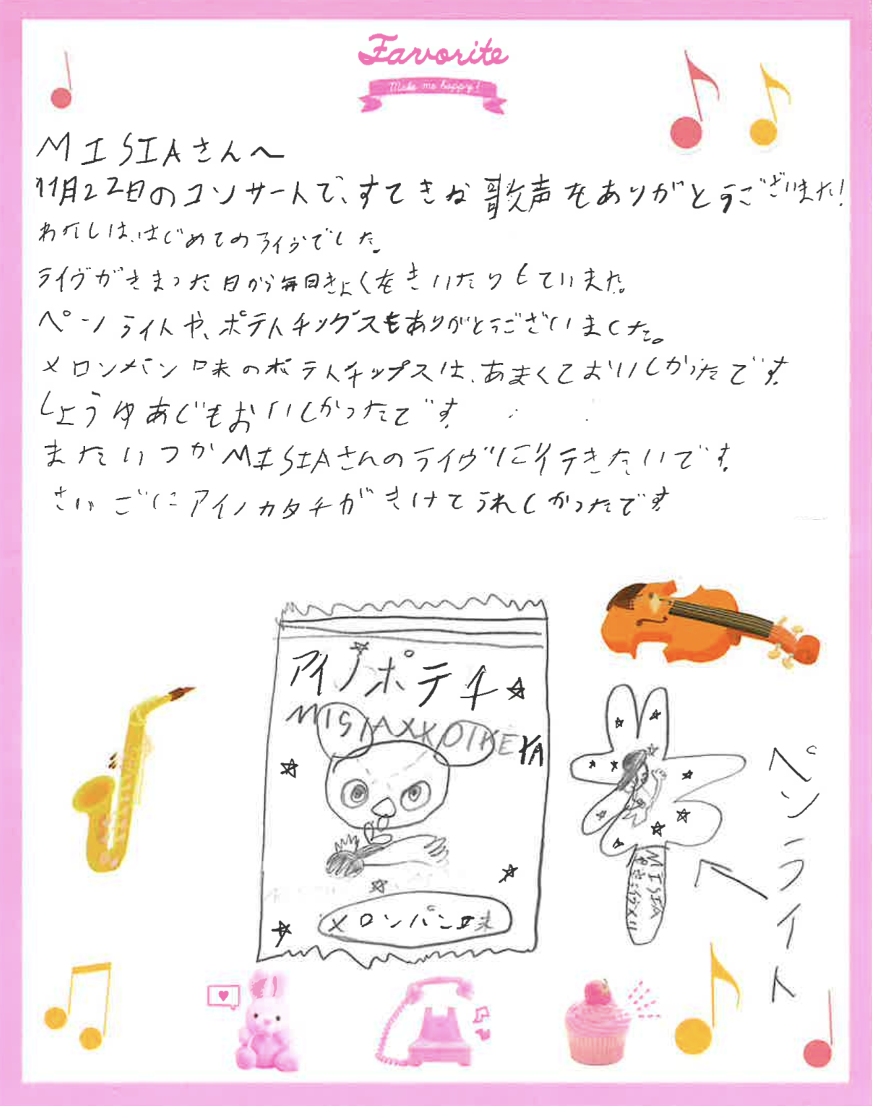 Favorite
Make me happy!
MISIAさんへ
11月22日のコンサートで、すてきな歌声をありがとうございました!
わたしは、はじめてのライヴでした。
ライヴがきまった日から毎日きょくをきいたりしていました。
ペンライトや、ポテトチップスもありがとうございました。
メロンパン味のポテトチップスは、あまくておいしかったです。
しょうゆあじもおいしかったです。
またいつかMISIAさんのライヴに行きたいです。
さいごにアイノカタチがきけてうれしかったです
アイノポテチ
MISIAXKOIKEYA
メロンパン味
MISIA
ペンライト